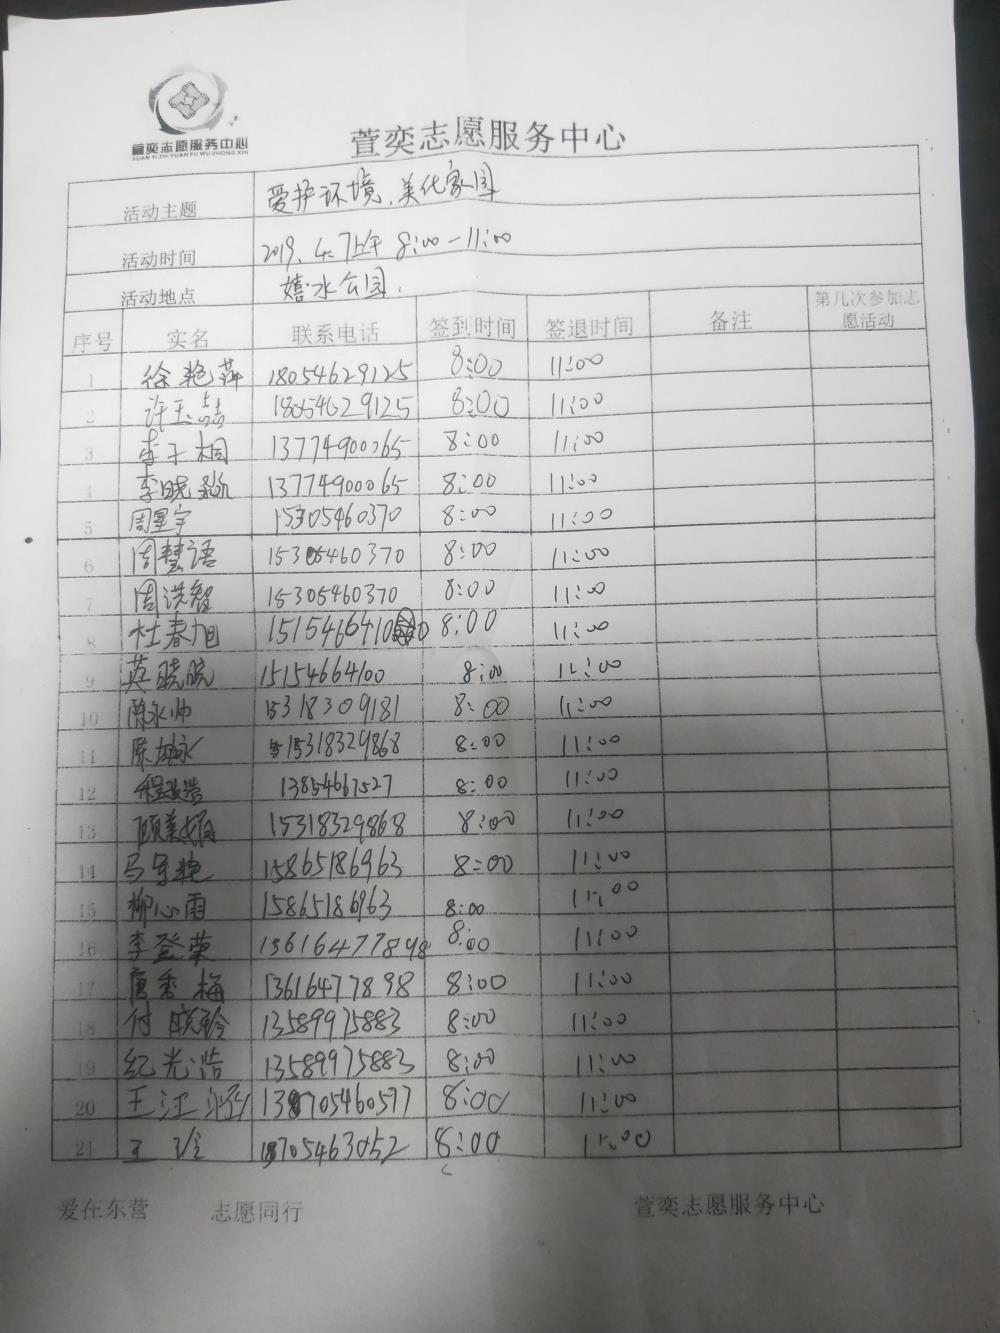 萱奕志愿服务中心
XUAN YI ZHI YUAN FU WU ZHONG XIN
萱奕志愿服务中心
活动主题 爱护环境、美化家园
活动时间 2019.4.7上午 8:00-11:00
活动地点 嬉水公园.
序号 实名 联系电话 签到时间 签退时间 备注 第几次参加志愿活动
1 徐艳萍 18054629125 8:00 11:00
2 许玉喆 18054629125 8:00 11:00
3 李子桐 13774900065 8:00 11:00
4 李晓 13774900065 8:00 11:00
5 周星宇 15305460370 8:00 11:00
6 周慧语 15305460370 8:00 11:00
7 周洪智 15305460370 8:00 11:00
8 杜春旭 1515466410 0 8:00 11:00
9 英晓晓 15154664100 8:00 11:00
10 陈永帅 15318309181 8:00 11:00
11 陈雄永 15318329868 8:00 11:00
12 程浩 13854667527 8:00 11:00
13 顾美娟 15318329868 8:00 11:00
14 马军艳 15865186963 8:00 11:00
15 柳心雨 15865186963 8:00 11:00
16 李登荣 13616477898 8:00 11:00
17 唐秀梅 13616477898 8:00 11:00
18 付晓玲 13589975883 8:00 11:00
19 纪光浩 13589975883 8:00 11:00
20 王江 13705460577 8:00 11:00
21 王玲 18705463052 8:00 11:00
爱在东营 志愿同行 萱奕志愿服务中心